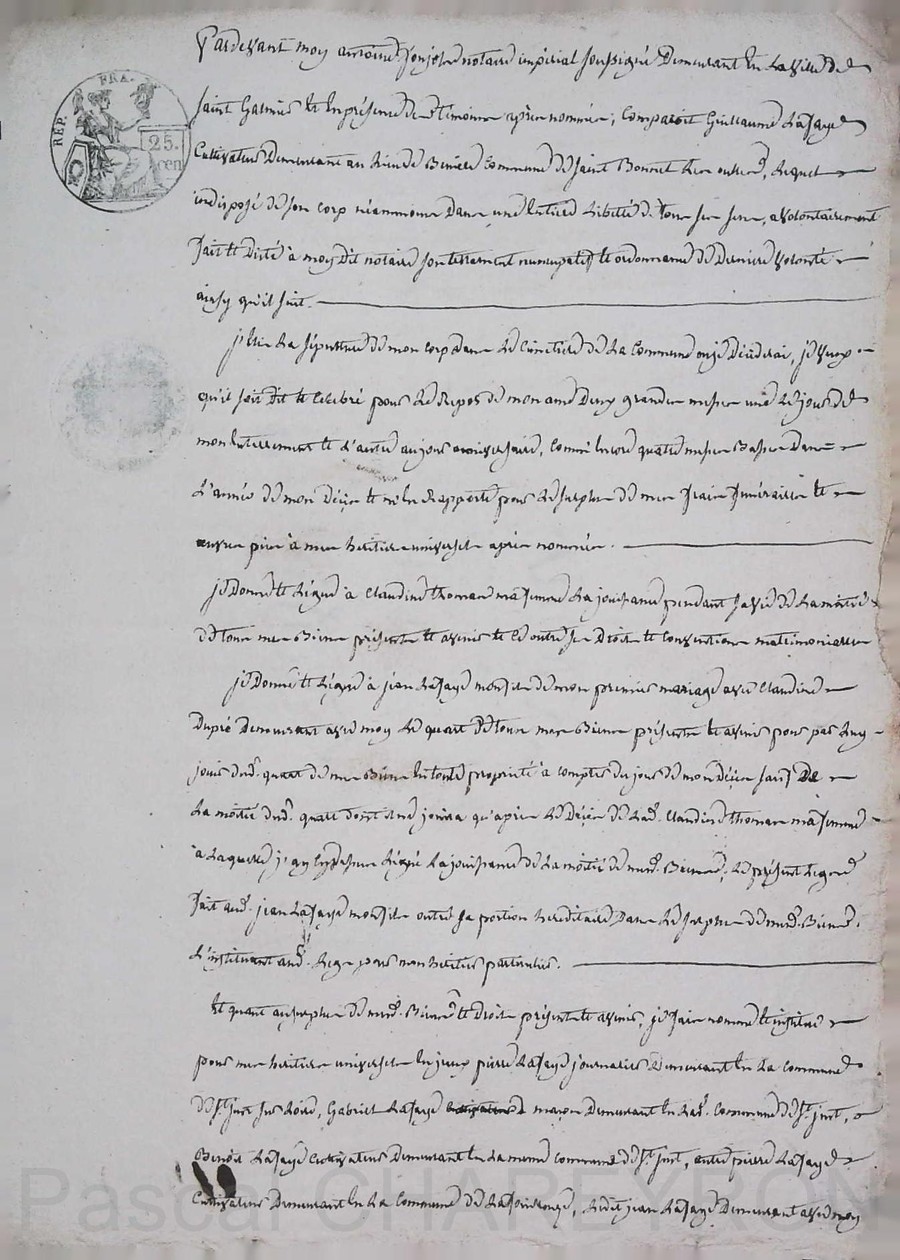 REP. FRA.
25. cen
Pardevant moy antoine notaire impérial soussigné Demeurant En La Ville de
Saint Galmier et En présence des temoins après nommés, Comparoit Guillaume Lafaye
Cultivateur Demeurant au Commune de Saint Bonnet Les oulles, Lequel
indisposé de son corp néanmoins Dans une Entière Liberté de tous ses sens, a volontairement
fait et Dicté à moy Dit notaire son testament nuncupatif et ordonnance de Derniere volonté
ainsy qu'il suit.
j'Elis La sépulture de mon corp Dans Le Cimetière de La Commune ou je Décéderai, je veux
qu'il soit Dit et Célébré pour Le Repos de mon ame Deux grandes messes une Le jour de
mon Enterrement et L'autre au jour anniversaire, comme Encore quatre messes Basses Dans
L'année de mon Décès et m'En Rapporte pour Le surplus de mes frais funéraires et
œuvres pies à mes heritiers universels après nommés.
je Donne et Lègue à Claudine thomas ma femme La jouissance pendant sa vie de La moitié
de tous mes Biens présents et avenir et ce outre ses Droits et Conventions matrimoniales
je Donne et Lègue à jean Lafaye mon fils de mon premier mariage avec Claudine
Dupré Demeurant avec moy Le quart de tous mes Biens présents et avenir pour par Luy
jouir dud. quart de mes Biens En toute propriété à compter du jour de mon Décès sauf De
La moitié dud. quart dont il ne jouira qu'après Le Décès de Lad. Claudine thomas ma femme
à Laquelle j'ay Cy dessus Légué La jouissance de La moitié de mesd. Biens, Le présent Legs
fait aud. jean Lafaye mon fils outre sa portion héréditaire Dans Le surplus de mesd. Biens,
L'instituant aud. Legs pour mon héritier particulier.
Et quant au surplus de mesd. Biens et Droits présents et avenir, je fais nomme et institue
pour mes heritiers universels Pierre Lafaye journalier Demeurant En La commune
de St. just sur Loire, Gabriel Lafaye maçon Demeurant En Lad. Commune de St. just,
Benoit Lafaye Cultivateur Demeurant En La meme Commune de St. just, autre pierre Lafaye
Cultivateur Demeurant En La Commune de Lafouillouse, Ledit jean Lafaye Demeurant avec moy
Pascal CHAREYRON